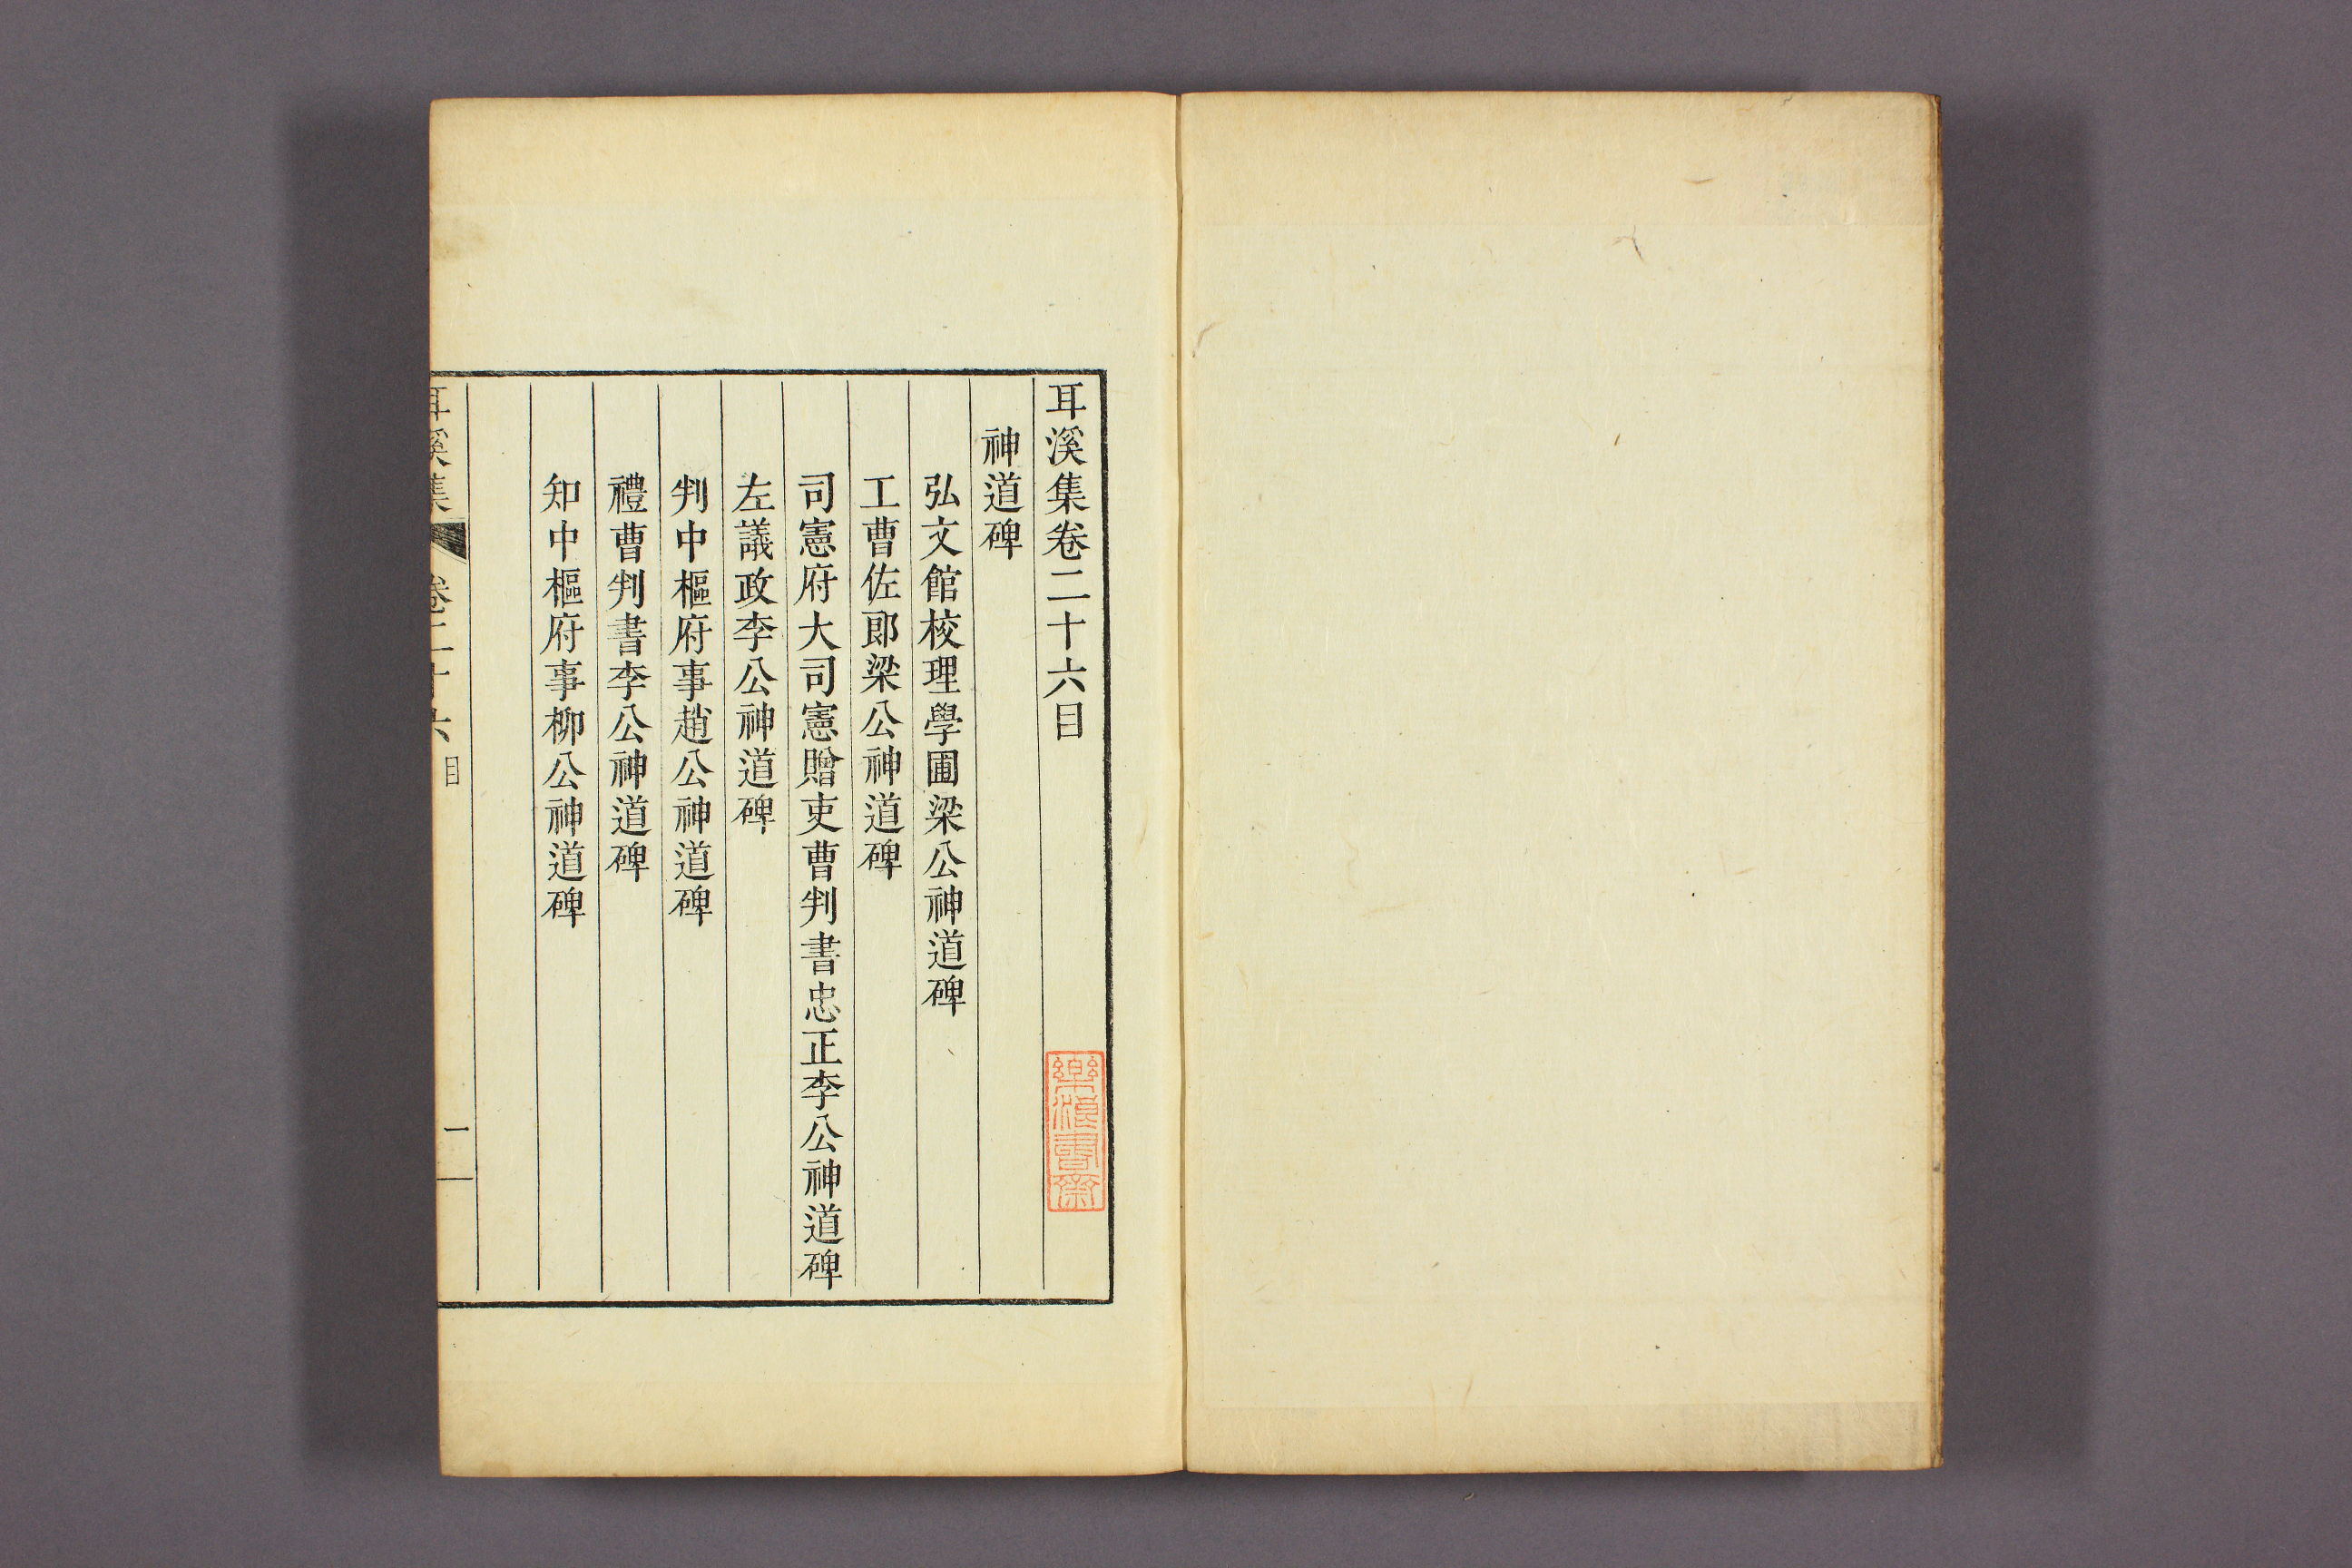 耳溪集卷二十六目
神道碑
弘文館校理學圃梁公神道碑
工曹佐郎梁公神道碑
司憲府大司憲贈吏曹判書忠正李公神道碑
左議政李公神道碑
判中樞府事趙公神道碑
禮曹判書李公神道碑
知中樞府事柳公神道碑
耳溪集 卷二十六 目 一
樂浪書齋